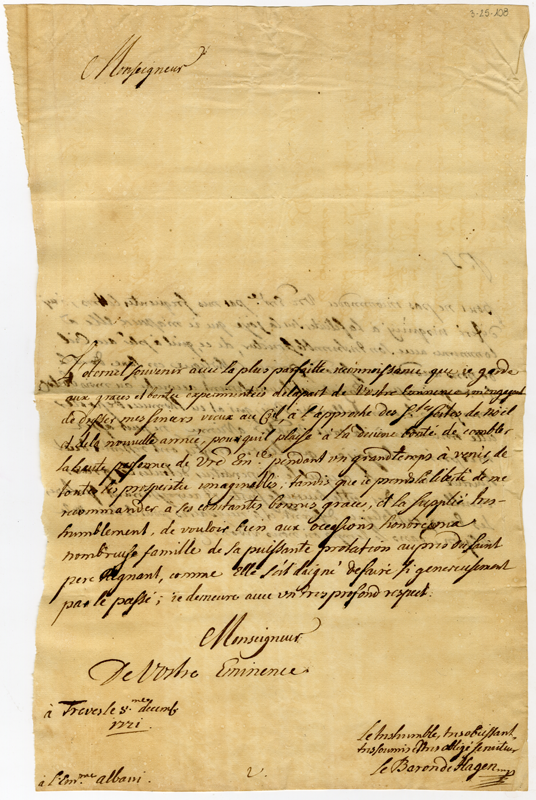 3-25-108
Monseigneur
L'eternel souvenir avec la plus parfaitte reconnoissance que je garde
aux graces et bontés experimentées de la part de Vostre Eminence m'engagent
de dresser mes sincers vœux au Ciel, à l'approche des Stes festes de noël
et de la nouvelle année, pour qu'il plaise à la divine bonté de combler
la haute personne de Vre Ence pendant un grand temps à venir, de
toutes les prosperités imaginelles; tandis que je prends la liberté de me
recommander à ses constantes bonnes graces, et la supplie tres
humblement, de vouloir bien aux occasions honorer ma
nombreuse famille de sa puissante protection auprés du saint
pere Regnant, comme Elle soit daigné de faire si genereusement
par le passé; je demeure avec un tres profond respect.
Monseigneur
De Vostre Eminence
à Treves le 8.me decemb
1721.
le tres humble, tres obeissant
tres soumis et tres obligé serviteur
Le Baron de Hagen
à l'Em.me albani
2